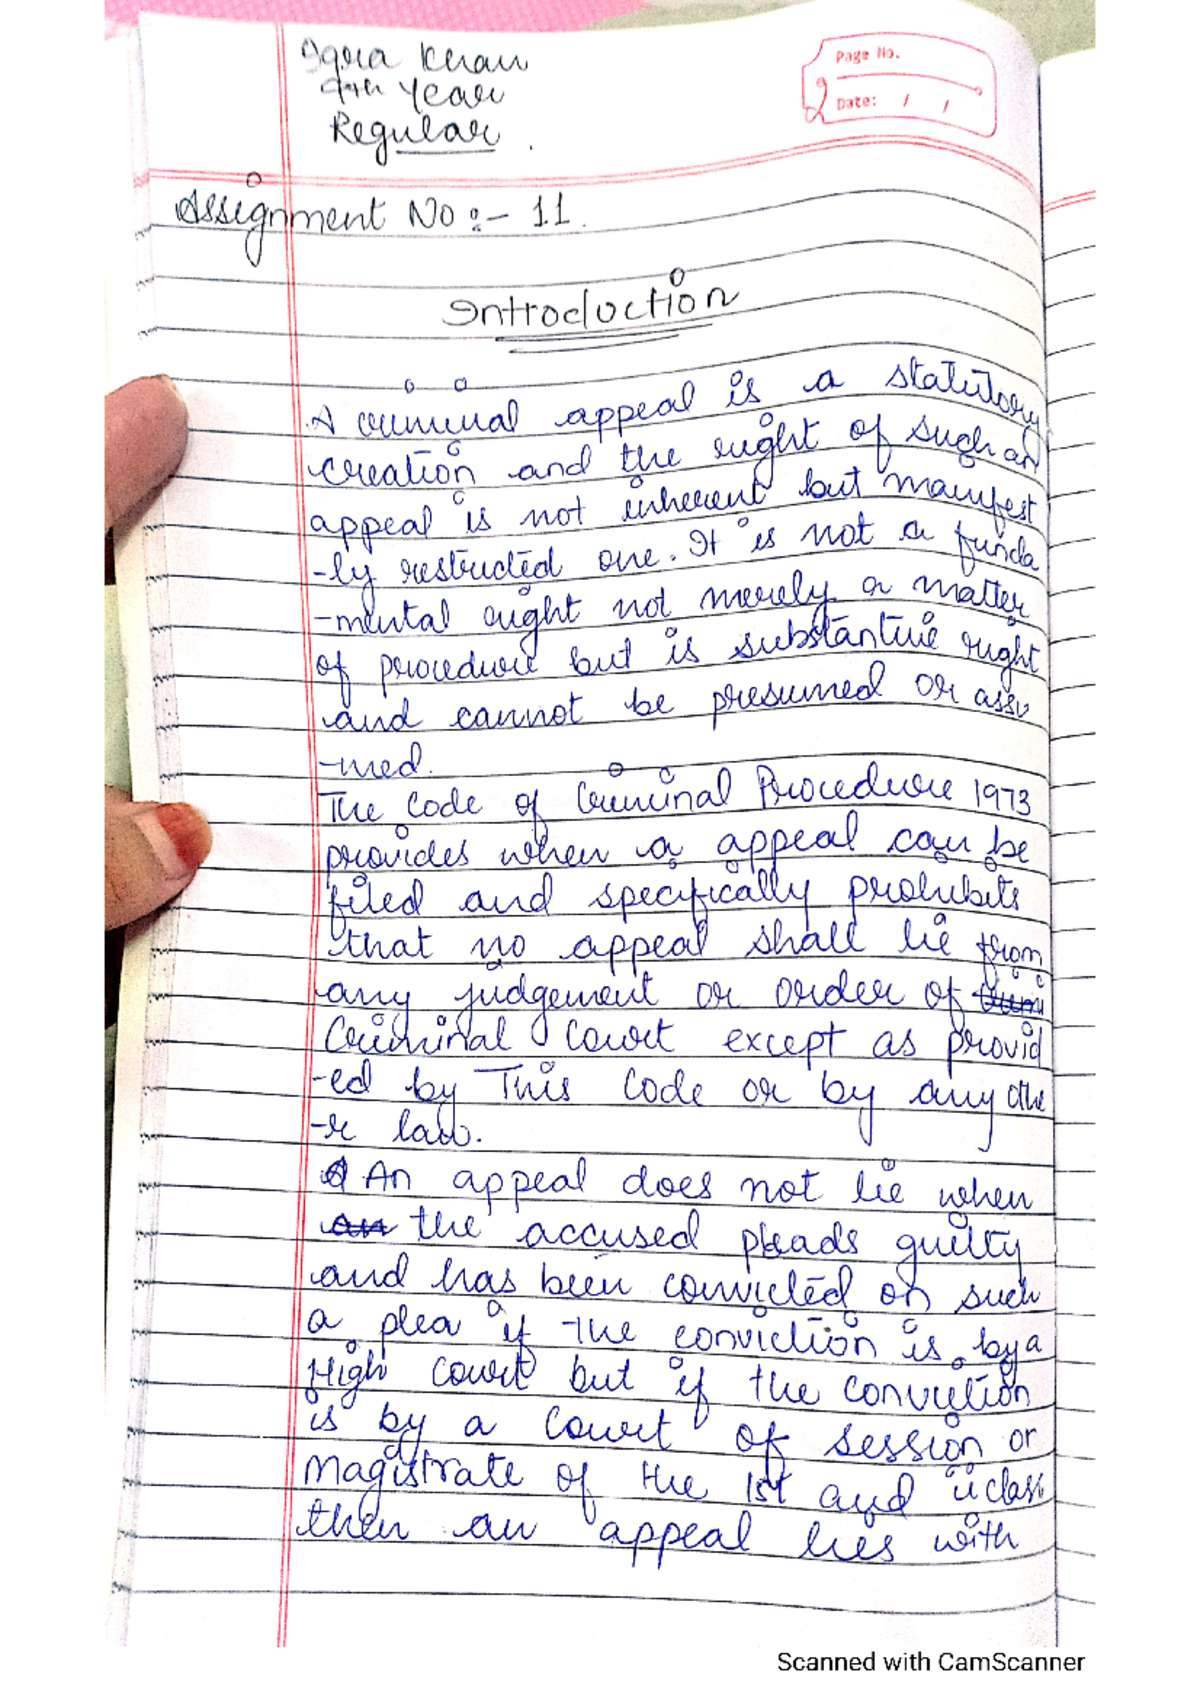 Iqra Khan
4th Year
Regular.
Page No.
Date: / /
Assignment No :- 11.
Introduction
A criminal appeal is a statutory
creation and the right of such an
appeal is not inherent but manifest
-ly restricted one. It is not a funda
-mental right not merely a matter
of procedure but is substantive right
and cannot be presumed or assu
-med.
The Code of Criminal Procedure 1973
provides when a appeal can be
filed and specifically prohibits
that no appeal shall lie from
any judgement or order of
Criminal Court except as provid
-ed by This Code or by any othe
-r law.
An appeal does not lie when
the accused pleads guilty
and has been convicted on such
a plea if the conviction is by a
High Court but if the conviction
is by a Court of Session or
Magistrate of the 1st and ii class
then an appeal lies with
Scanned with CamScanner